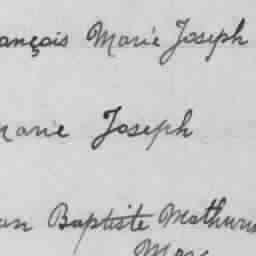 ançois Marie Joseph
Marie Joseph
an Baptiste Mathurin
Marc